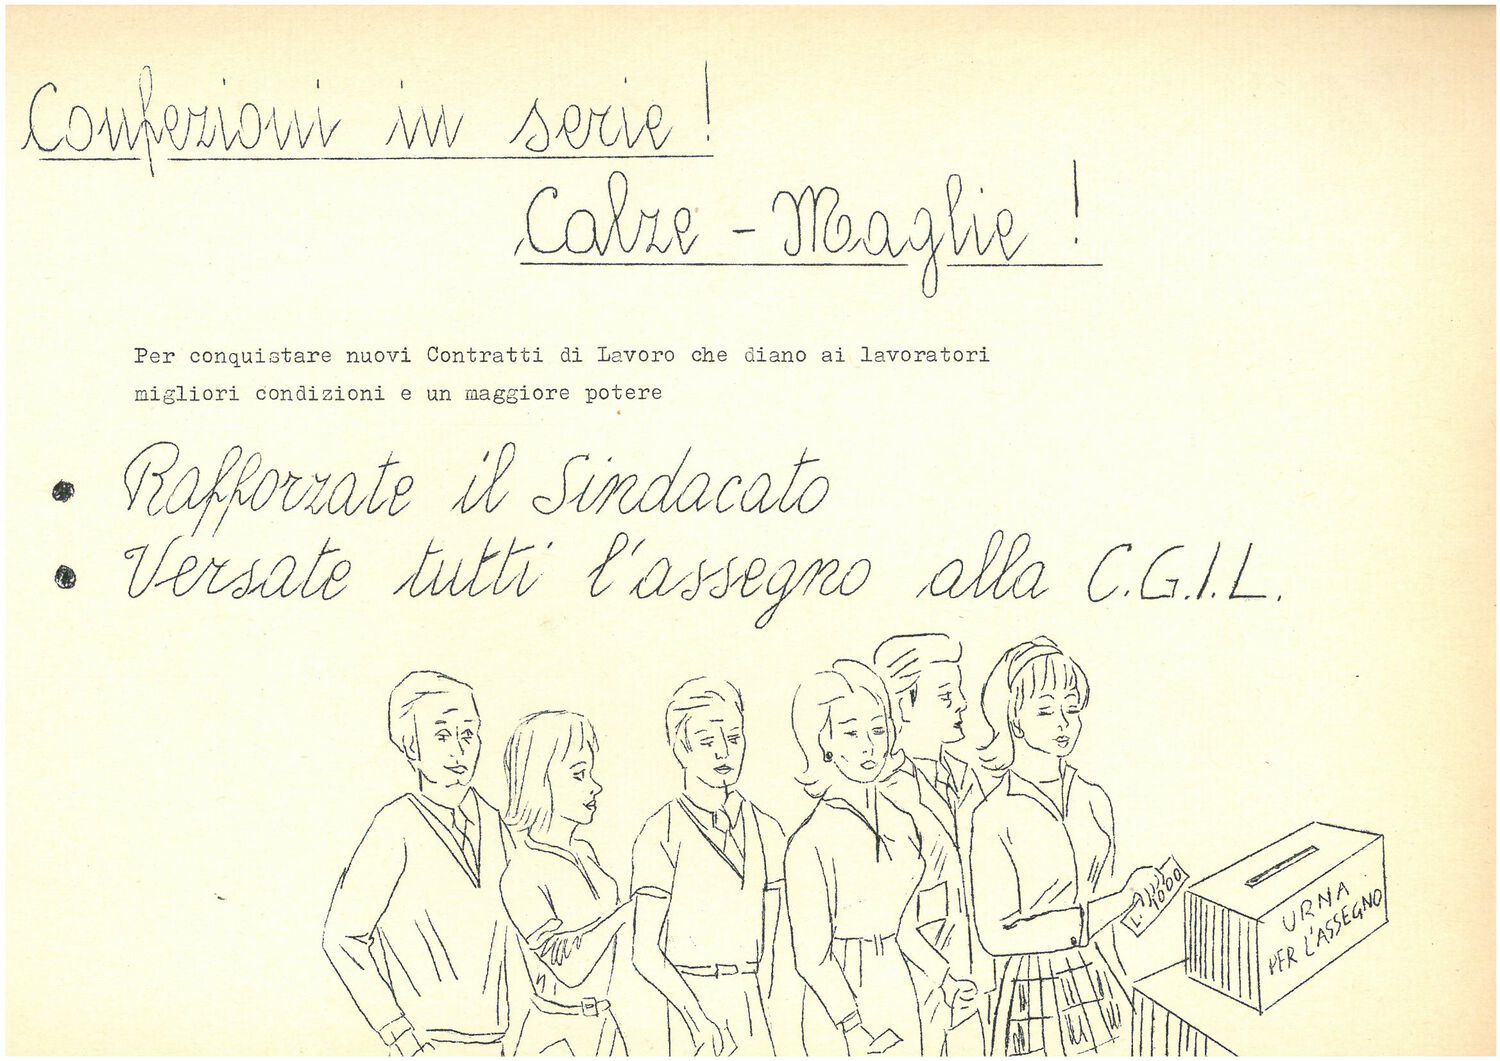 Confezioni in serie!
Calze - Maglie!
Per conquistare nuovi Contratti di Lavoro che diano ai lavoratori
migliori condizioni e un maggiore potere
• Rafforzate il Sindacato
• Versate tutti l'assegno alla C.G.I.L.
URNA
PER L'ASSEGNO